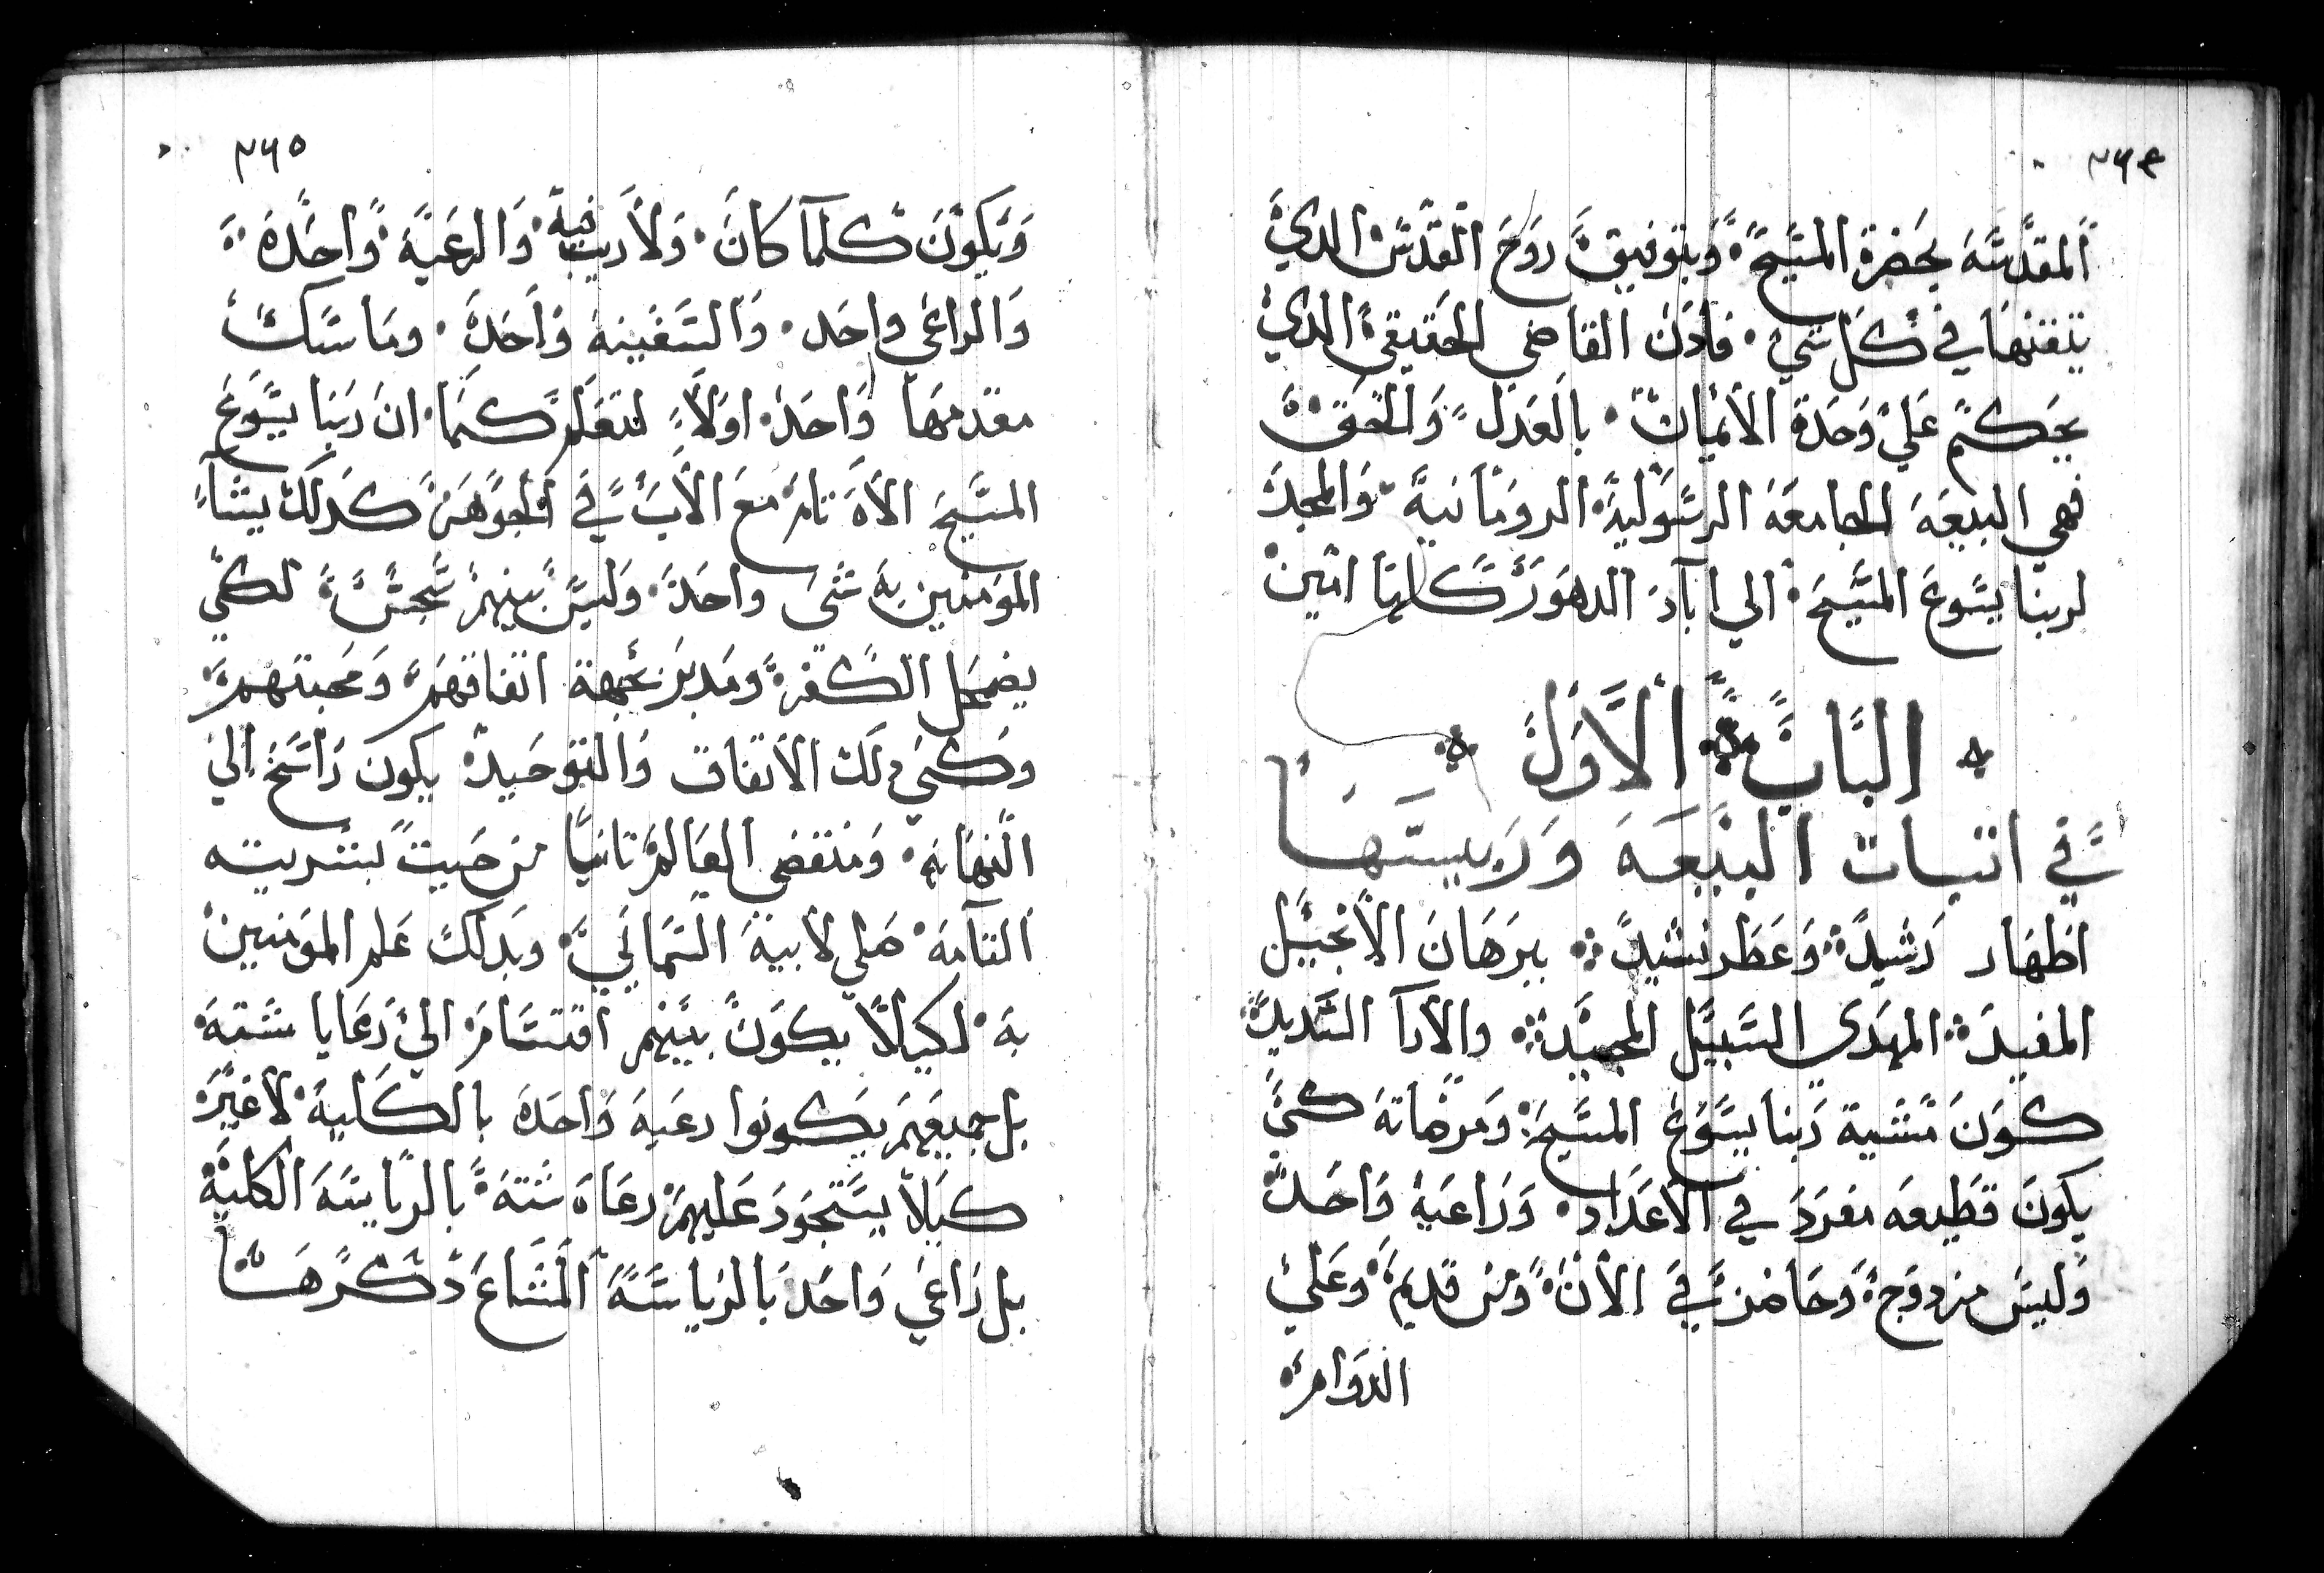 ٣٦٤
المقدَّسَة بحَضرة المسَيحَ وَبتوفيق روَح القدَسَ الدي
يتقنهَا في كل شي فادَن القاضي الحقيقي الدي
يحَكم عَلي وَحَدة الأيمان بالعَدل وَالحَق
فهي البيعَة الجامعَة الرسَولية الرومَانية وَالمجد
لربنا يسَوعَ المسَيحَ الي اباد الدهَور كلها امين
البَابَ الأوَلَ
في اتبات البيعَة وَريسَتهَا
اظهَار رَشيد وَعَطر نشيد ببرَهَان الأنجيل
المفيد المهَدي السَبيل المجيد والارآ السَديد
كوَن مَشية رَبنا يسَوعَ المسَيحَ وَمرضاته كي
يكونَ قطيعَه مفرَدَ في الاعَدَاد وَرَاعَية وَاحَد
وَليسَ مزدوَج وَحَاضر في الأن وَمن قديم وعَلي
الدوَام
٣٦٥
وَيكونَ كلمآ كانَ وَلاَ ريب فيه وَالرعَية وَاحَدة
وَالراعَي واحَد وَالسَفينة وَاحَدة ومَاسَك
مقدمهَا وَاحَد اولاً لتعَلم كمَا ان رَبنا يسَوعَ
المسَيحَ الاَه تام معَ الأب في الجوَهَر كدَلك يشآ
المومنين به شَي واحَد وَليسَ بينهم سَجسَ لكي
يضمحَل الكفرَ ومَدبر بجهة اتفاقهَم وَمحَبتهَم
وكي دلك الاتفاق وَالتوحَيد يكونَ رَاسَخ الي
النهَاية وَمنقضي العَالم تانيًا من حَيت بشريته
التآمة صَلي لأبية السَمَاني وبدَلك عَلم المومنين
به لكيلا يكوَن بينهم اقتسَام الي رَعَايا شَتة
بل جميعَهم يكونوا رعَية وَاحَدة بالكلية لا غيرَ
كيلا يسَتجوَد عَليهم رعَاة شَتة بالريَاسَة الكلية
بل رَاعَي وَاحَد بالريَاسَة المشَاعَ دكرهَا